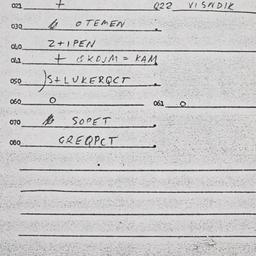 021 + 022 VISNDIK
030 OTEMEN
040 Z+IPEN
041 + = KAM
050 )S+LUKERQCT
060 O 061 O
070 SOPET
080 GREQPCT